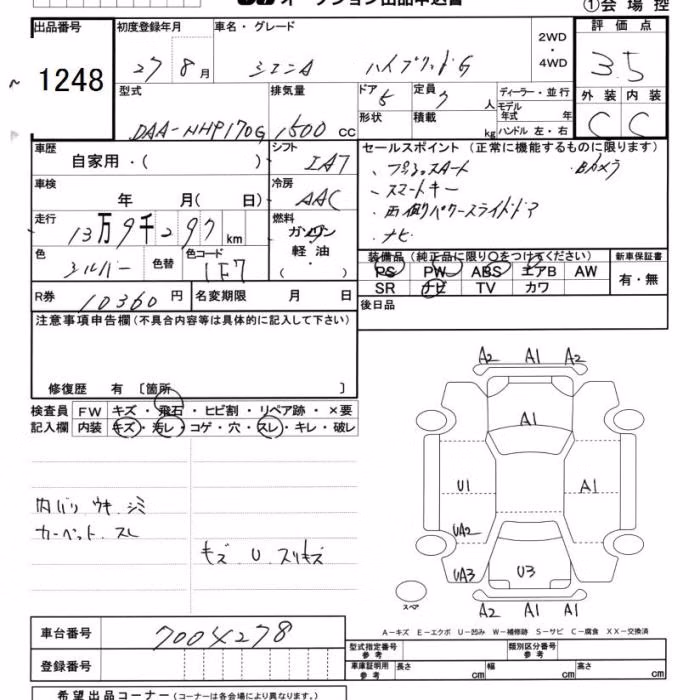 オークション出品申込書
①会場控
出品番号
1248
初度登録年月
27 8月
車名・グレード
シエンタ ハイブリッドG
2WD・4WD
評価点
3.5
型式
DAA-NHP170G
排気量
1500 cc
ドア 5
形状
定員 7 人
積載 kg
ディーラー・並行
モデル年式 年
ハンドル 左・右
外装 内装
C C
車歴
自家用・( )
シフト
IAT
車検
年 月( 日)
冷房
AAC
走行
13万9千297 km
燃料
ガソリン
軽油
・( )
色
シルバー
色替
色コード
1F7
R券
10360円
名変期限 月 日
セールスポイント(正常に機能するものに限ります)
・プッシュスタート ・Bカメラ
・スマートキー
・両側パワースライドドア
・ナビ
装備品(純正品に限り○をつけてください)
PS PW ABS エアB AW
SR ナビ TV カワ
新車保証書
有・無
後日品
注意事項申告欄(不具合内容等は具体的に記入して下さい)
修復歴 有〔箇所 〕
検査員記入欄
FW キズ・飛石・ヒビ割・リペア跡・×要
内装 キズ・汚レ・コゲ・穴・スレ・キレ・破レ
内バリ ウキ シミ
カーペット スレ
キズ U スリキズ
A2 A1 A2
A1
U1 A1
UA2
UA3 U3
スペア
A2 A1 A1
A-キズ E-エクボ U-凹み W-補修跡 S-サビ C-腐食 XX-交換済
車台番号
7004278
登録番号
型式指定番号 参考
類別区分番号 参考
車庫証明用 参考
長さ cm 幅 cm 高さ cm
希望出品コーナー(コーナーは各会場により異なります。)